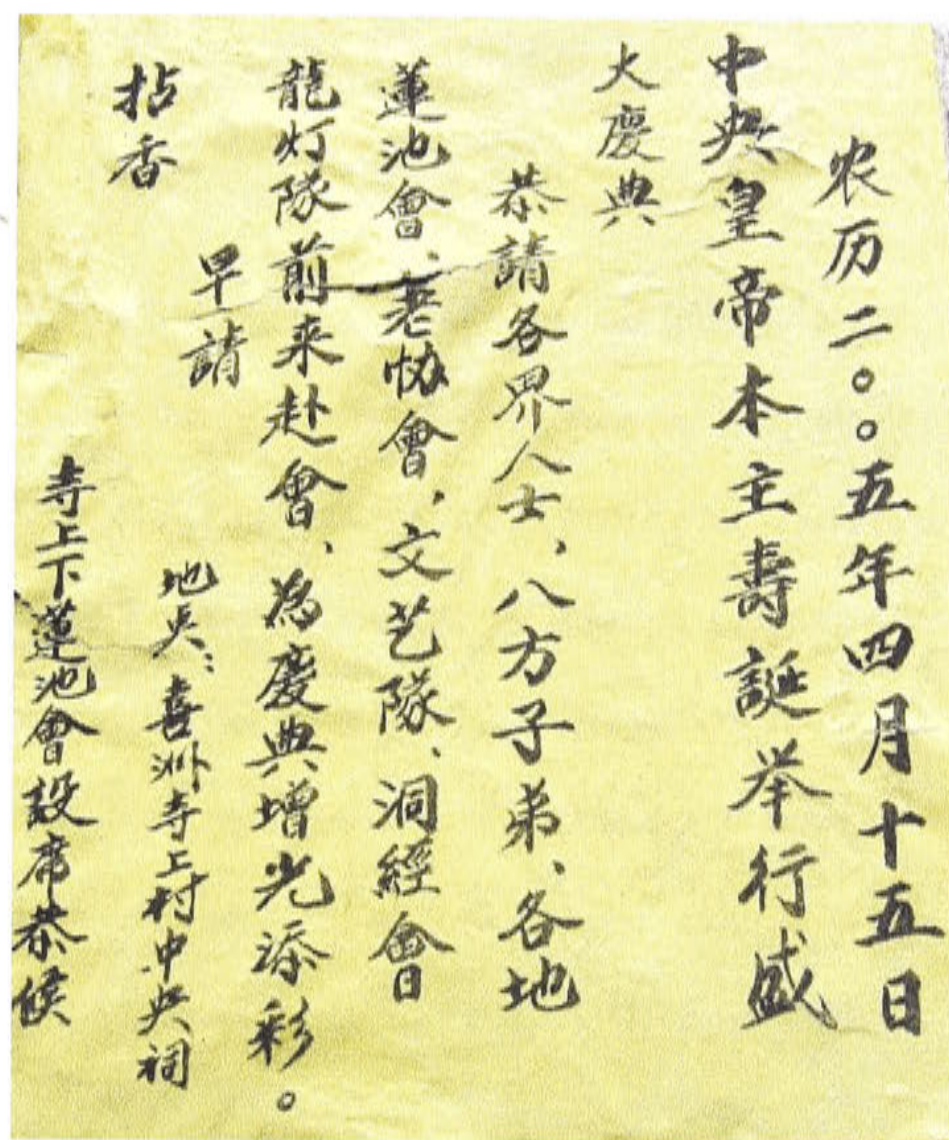 农历二〇〇五年四月十五日
中央皇帝本主壽誕举行盛
大慶典
恭請各界人士、八方子弟、各地
蓮池會、老协會、文艺隊、洞經會
龍灯隊前来赴會、為慶典增光添彩。
早請
拈香
地点：喜洲寺上村中央祠
寺上下蓮池會設席恭候